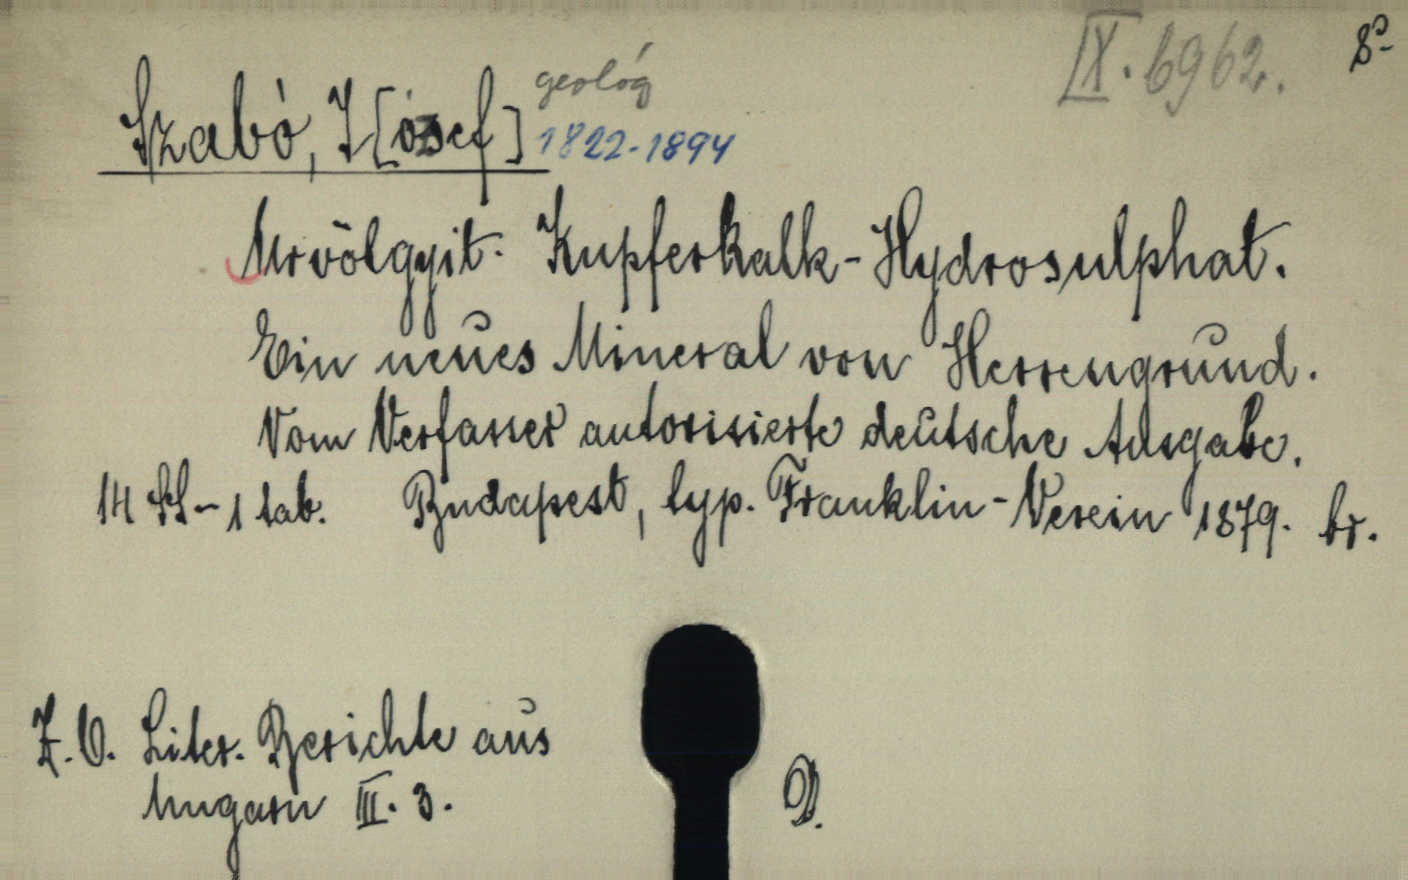 IX. 6962. 8°
geológ
Szabó, J[ózsef] 1822-1894
Urvölgyit. Kupferkalk-Hydrosulphat.
Ein neues Mineral von Herrengrund.
Vom Verfasser autorisierte deutsche Ausgabe.
14 SS - 1 tab. Budapest, typ. Franklin-Verein 1879. br.
Liter. Berichte aus
Ungarn III. 3.